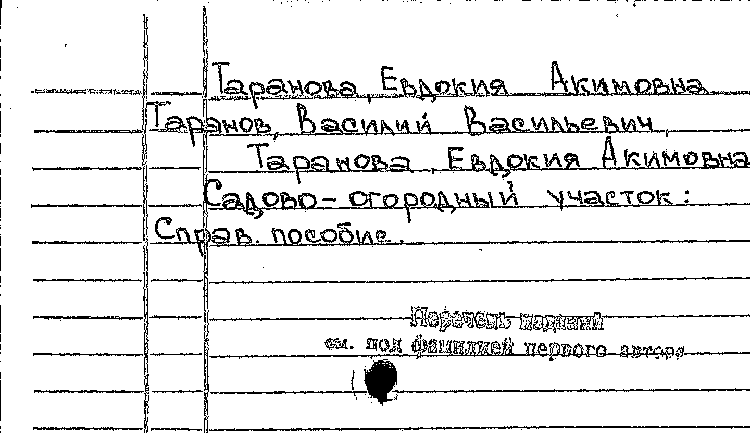 Таранова, Евдокия Акимовна
Таранов, Василий Васильевич,
Таранова, Евдокия Акимовна
Садово-огородный участок:
Справ. пособие.
Перечень изданий
см. под фамилией первого автора